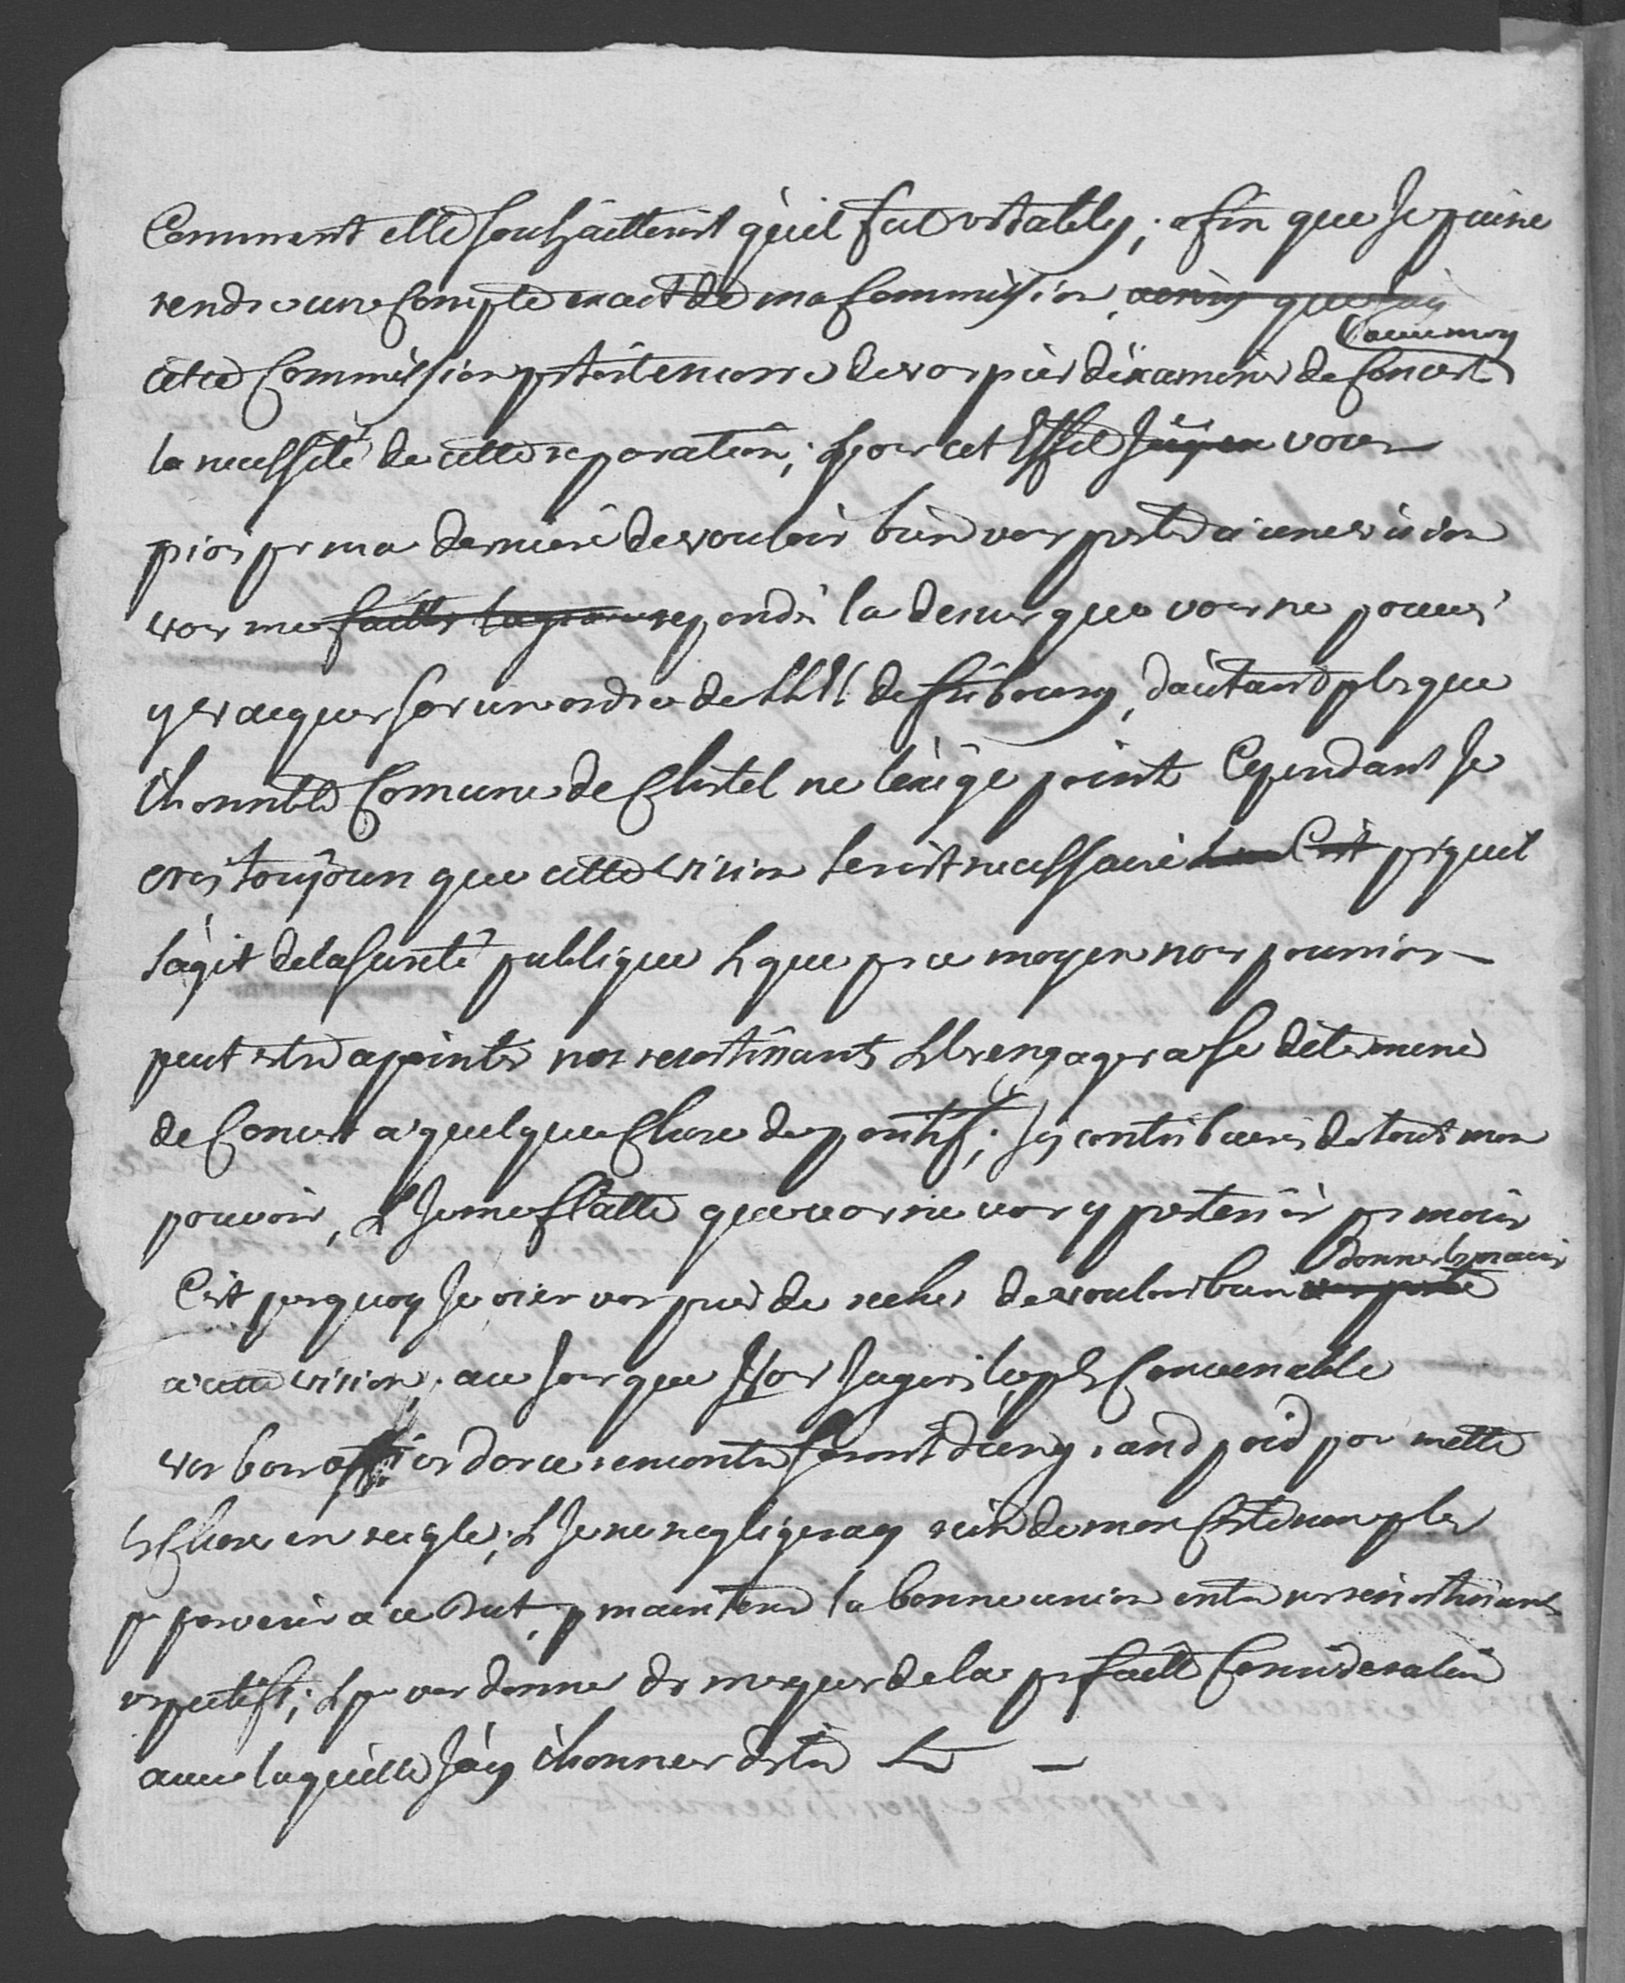 Comment elle souhaitteroit qu'il fut retably; afin que Je puisse
rendre une Compte exact de ma Commission
avec moy
cette Commission portoit encore de vos prier d'examiner de Concert
la necessité de cette reparation; & pour cet Effet vous
priois pr ma derniere de vouloir bien vous porter a une vision
vos me repondés la desus que vous ne pouvés
y vacquer sans un ordre de LLEE de fribourg, d'autant plus que
l'honnble Comune de Chatel ne l'exige point Cependant Je
crois toujours que cette vision seroit necessaire puis quil
s'agit de la sureté publique & que pr ce moyen nous pourrions
peut etre apointer nos resortissants & les engager a se determiner
de Concert a quelque Chose de positif; J'y contribueray de tout mon
pouvoir, & Je me flatte que vos ne vos y porterés pas moins
donner les mains
C'est pourquoy Je viens vos prier de rechef de vouloir bien
a cette vision, au Jour que Vos Jugerés le plus Convenable
vos bons offices dans ce rencontre seront d'un grand poid pour mettre
les Choses en reigle; & Je ne negligeray rien de mon Coté non plus
pr parvenir a ce but, pr maintenir la bonne union entre nos resortissants
respectifs; & pr vos donner des marques de la parfaitte Consideration
avec laquelle J'ay l'honneur d'etre &c —